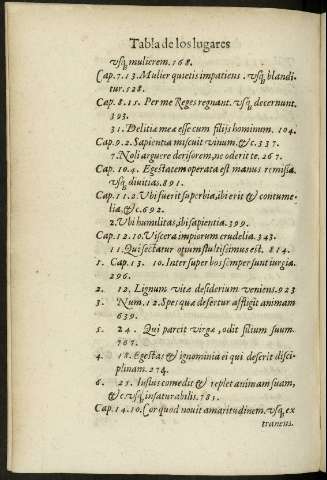 Tabla de los lugares
vsq; mulierem. 168.
Cap. 7. 13. Mulier quietis impatiens. vsq; blandi-
tur. 128.
Cap. 8. 15. Per me Reges regnant. vsq; te. decernunt.
393.
31. Delitiæ meæ esse cum filijs hominum. 104.
Cap. 9. 2. Sapientia miscuit vinum. &c. 337.
7. Noli arguere derisorem, ne oderit te. 267.
Cap. 10. 4. Egestatem operata est manus remissa.
vsq; diuitias. 891.
Cap. 11. 2. Vbi fuerit superbia, ibi erit & contume-
lia. &c. 692.
2. Vbi humilitas, ibi sapientia. 399.
Cap. 12. 10. Viscera impiorum crudelia. 343.
11. Qui sectatur otium stultissimus est. 814.
1. Cap. 13. 10. Inter superbos semper sunt iurgia.
296.
2. 12. Lignum vitæ desiderium veniens. 923
3. Num. 12. Spes quæ defertur affligit animam
639.
5. 24. Qui parcit virgæ, odit filium suum.
767.
4. 18. Egestas & ignominia ei qui deserit disci-
plinam. 274.
6. 25. Iustus comedit & replet animam suam,
&c. vsq; insaturabilis. 783.
Cap. 14. 10. Cor quod nouit amaritudinem. vsq; ex
traneus.